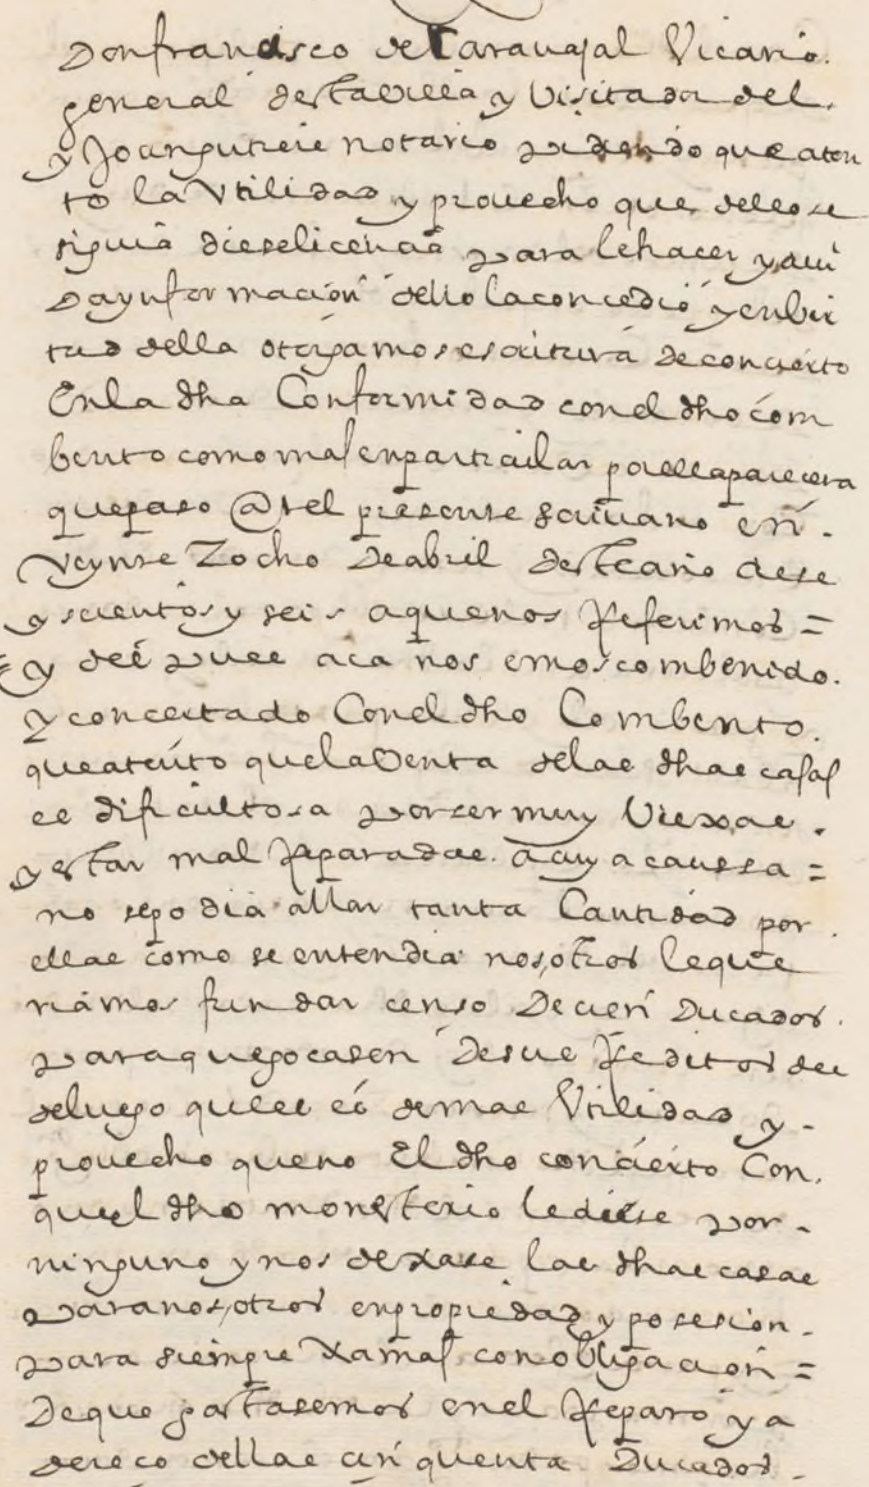 Don francisco de Carauajal Vicario.
general desta villa y Visitador del.
y Joan gutierre notario pidiendo que aten
to la Vtilidad y prouecho que dello se
siguia diese licencia para le hacer y aui
da ynformacion dello la concedio y en bir
tud della otorgamos escritura de concierto
En la dha Conformidad con el dho com
bento como mas en particular por ella parecera
que paso @te el presente scriuano en.
Veynte Z ocho de abril deste año de se
yscientos y seis a que nos Referimos =
y del pues aca nos emos combenido.
y concertado Con el dho Combento.
que atento que la Venta de las dhas casas
es dificultosa por ser muy Viexas.
y estar mal Reparadas. a cuya caussa =
no se podia allar tanta Cantidad por.
ellas como se entendia nosotros le que
riamos fundar censo De cien Ducados.
para que gocasen De sus Reditos des
de luego que les es de mas Vtilidad y-
prouecho que no El dho concierto Con.
que el dho monesterio le diese por-
ninguno y nos dexase las dhas casas
para nosotros en propiedad y posesion-
para siempre Xamas con obligacion =
De que gastasemos en el Reparo y a
dereco dellas cinquenta Ducados-